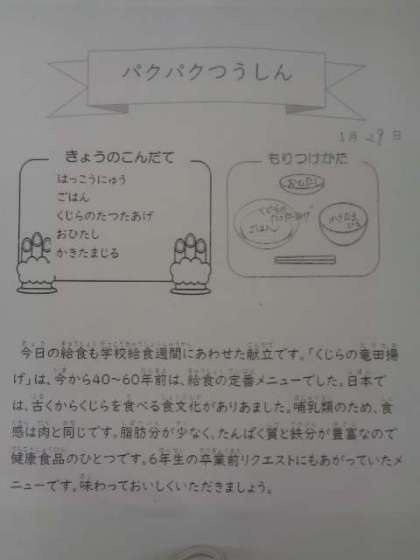 パクパクつうしん
1月29日
きょうのこんだて
はっこうにゅう
ごはん
くじらのたつたあげ
おひたし
かきたまじる
もりつけかた
おひたし
くじらの
たつたあげ
ごはん
かきたま
じる
今日の給食も学校給食週間にあわせた献立です。「くじらの竜田揚
げ」は、今から40~60年前は、給食の定番メニューでした。日本で
は、古くからくじらを食べる食文化がありあました。哺乳類のため、食
感は肉と同じです。脂肪分が少なく、たんぱく質と鉄分が豊富なので
健康食品のひとつです。6年生の卒業前リクエストにもあがっていたメ
ニューです。味わっておいしくいただきましょう。